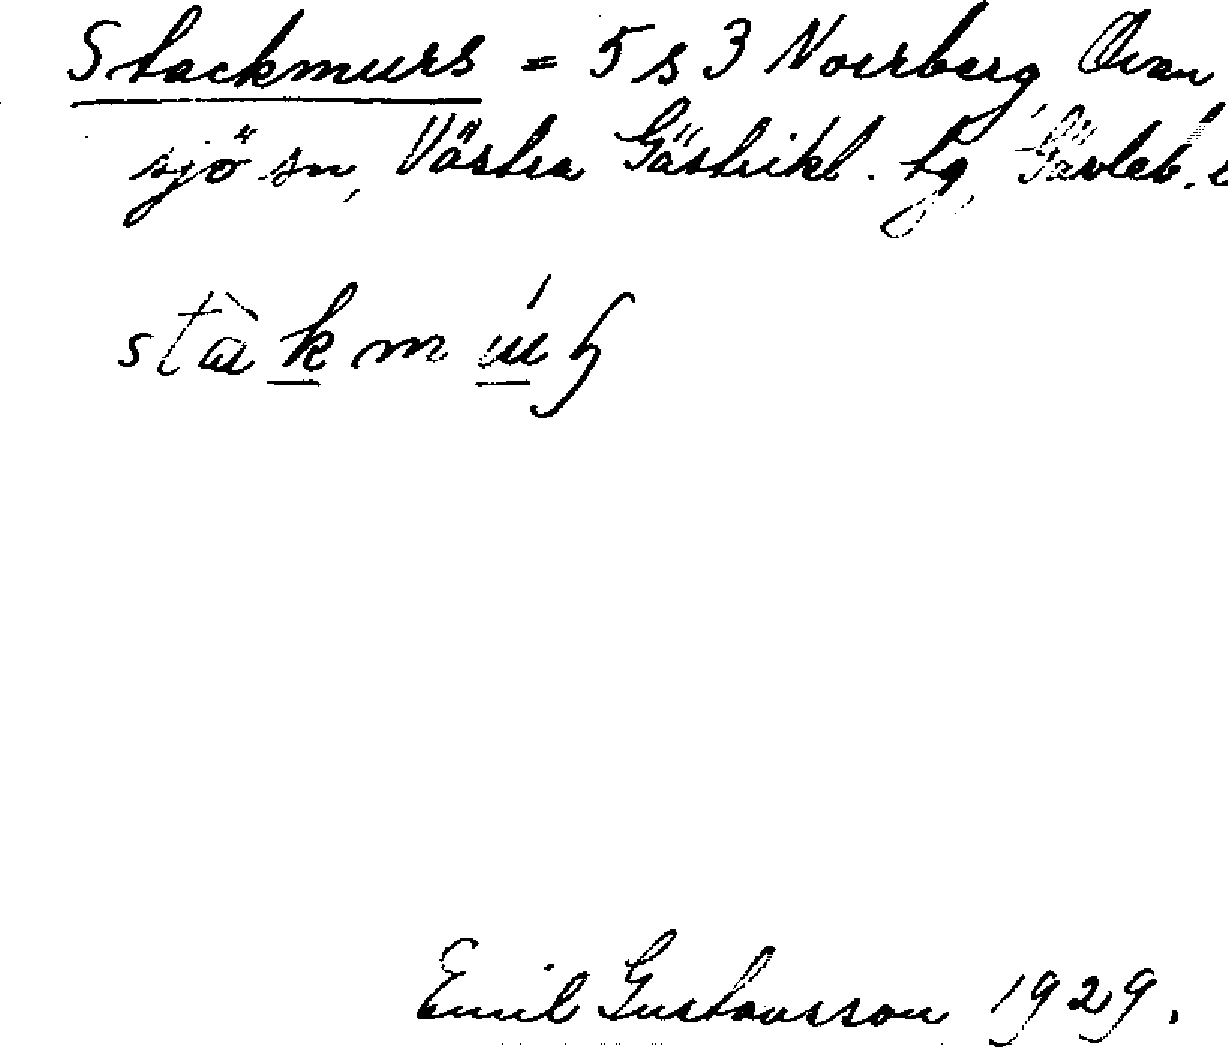 Stackmurs = 5 s 3 Norrberg Ovan
sjö sn, Västra Gästrikl. tg, Gävleb.
Emil Gustavsson 1929.